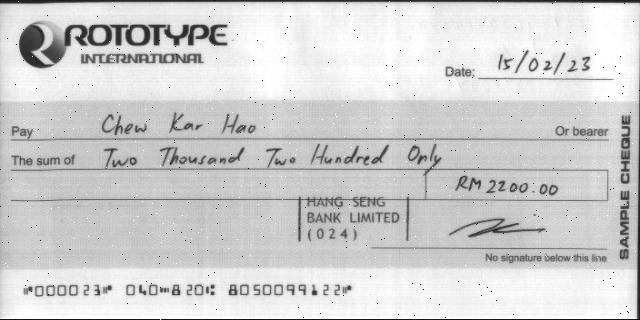 ROTOTYPE
INTERNATIONAL
Date: 15/02/23
Pay Chew Kar Hao Or bearer
The sum of Two Thousand Two Hundred Only
RM 2200.00
HANG SENG
BANK LIMITED
(024)
No signature below this line
SAMPLE CHEQUE
⑈000023⑈ 040⑉820⑆ 8050099122⑈